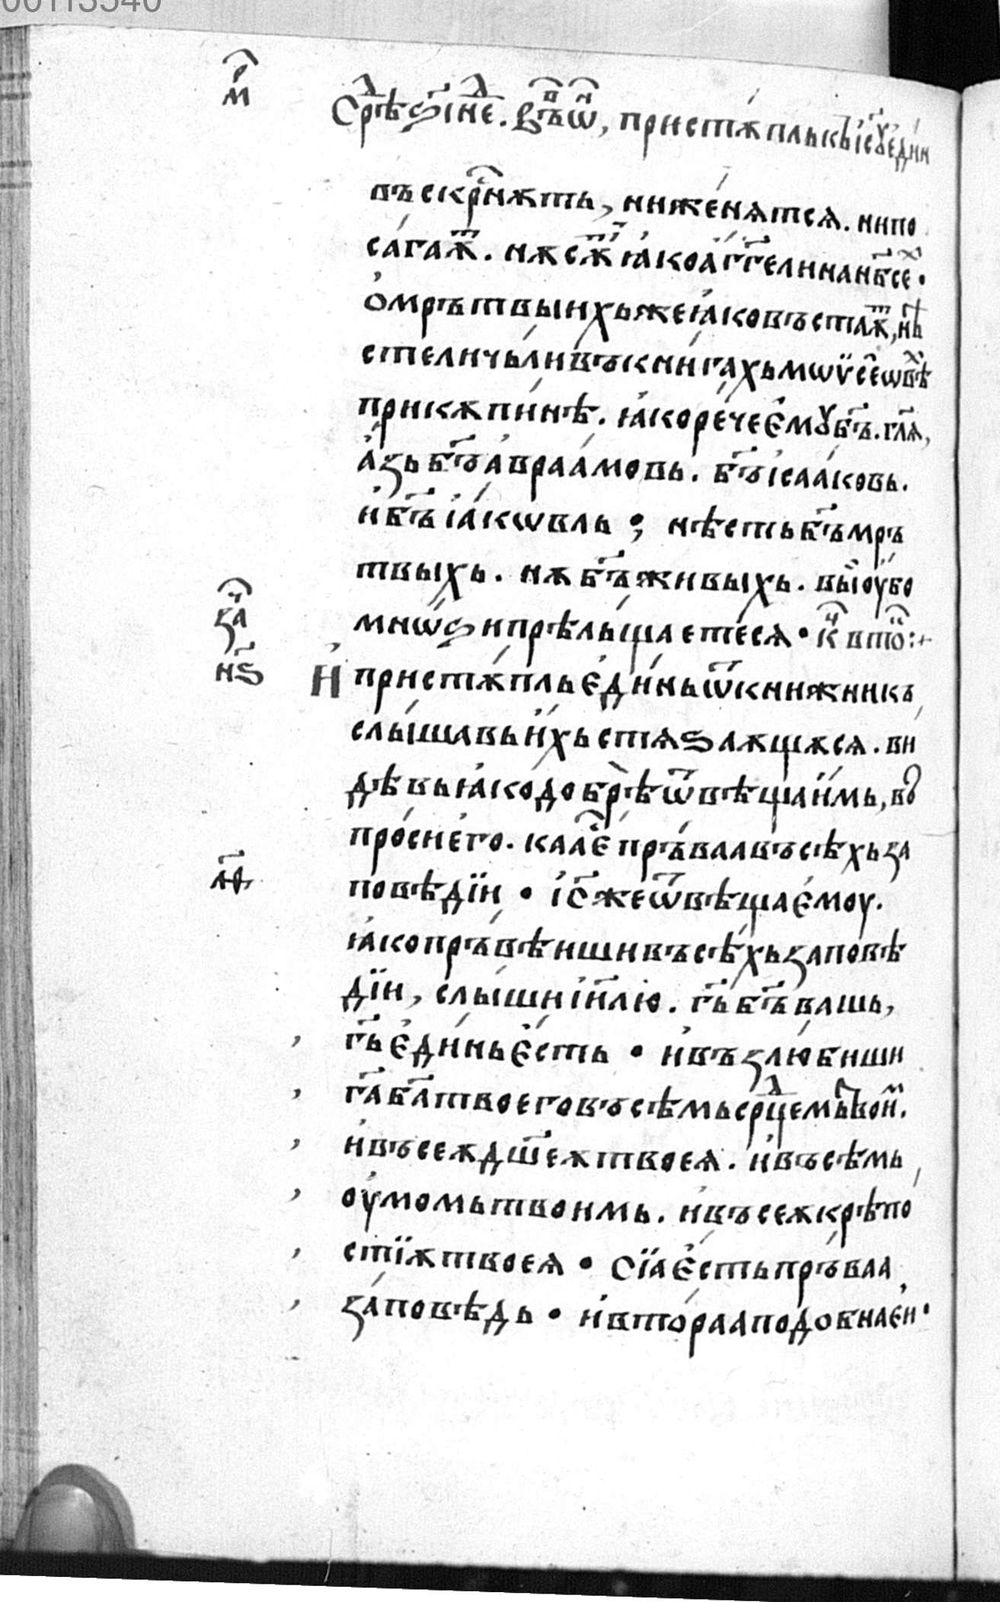 00113540
мⷬ҇
Срⷣѣ ѕ҃ і нⷣе. въⷪ҇ ѡⷩ҇, пристѫпль къ і҃соу є҆ди́н
въскрⷭ҇нѫть, ниже́нѧтсѧ. нипо
сѧ́гаѫⷮ. нѫ сѫⷮ ꙗ҆́ко а҆́гг҃ели на нб҃сеⷯ.
Ѡ҆ мрътвыихь же ꙗ҆́ко въстаѫⷮ, нѣ
сте ли чьли въ кни́гахь мѡѵсеⷪ҇ѡвѣⷯ
при кѫпи́нѣ. ꙗ҆́ко ре́че є҆моу б҃ъ. гл҃ѧ,
а҆́зь б҃ъ а҆враа́мовь. б҃ъ і҆саа́ковь.
и҆ б҃ъ і҆а́кѡвль ; нѣсть б҃ъ мръ
твыхь. нѫ б҃ъ живыхь. вы̀ оу҆́бо
мнѡ́ѕи прѣльща́етесѧ · кⷰ҇ втоⷪ҇ :+
заⷱ҇
н҃ѕ
И҆ пристѫпль є҆ди́нь ѿ книжникъ
слы́шавь и҆́хь стѧѕаѫщѫсѧ. ви
дѣвь ꙗ҆́ко до́брѣ ѿвѣща и҆́мь, во
про́си є҆го̀. каа̀ єⷭ҇ пръ́ваа въсѣхь за
л҃ѳ
повѣдїи · і҃с же ѿвѣща є҆моу.
ꙗ҆́ко пръвѣ́иши въсѣ́хь за́повѣ
дїи, слы́ши і҆и҃лю. г҃ь б҃ъ вашь,
г҃ь є҆ди́нь є҆́сть · и҆ възлю́биши
г҃а б҃а твоего въсѣмь срⷣцемь твоиⷨ.
и҆ въсеѫ дш҃еѫ твоеѧ. и҆ въсѣмь
оу҆мо́мь твоимь. и҆ въсеѫ крѣпо
стїѫ твоеѧ · Сїа є҆́сть пръ́ваа
за́повѣдь · и҆ вто́раа подобна є҆и ·